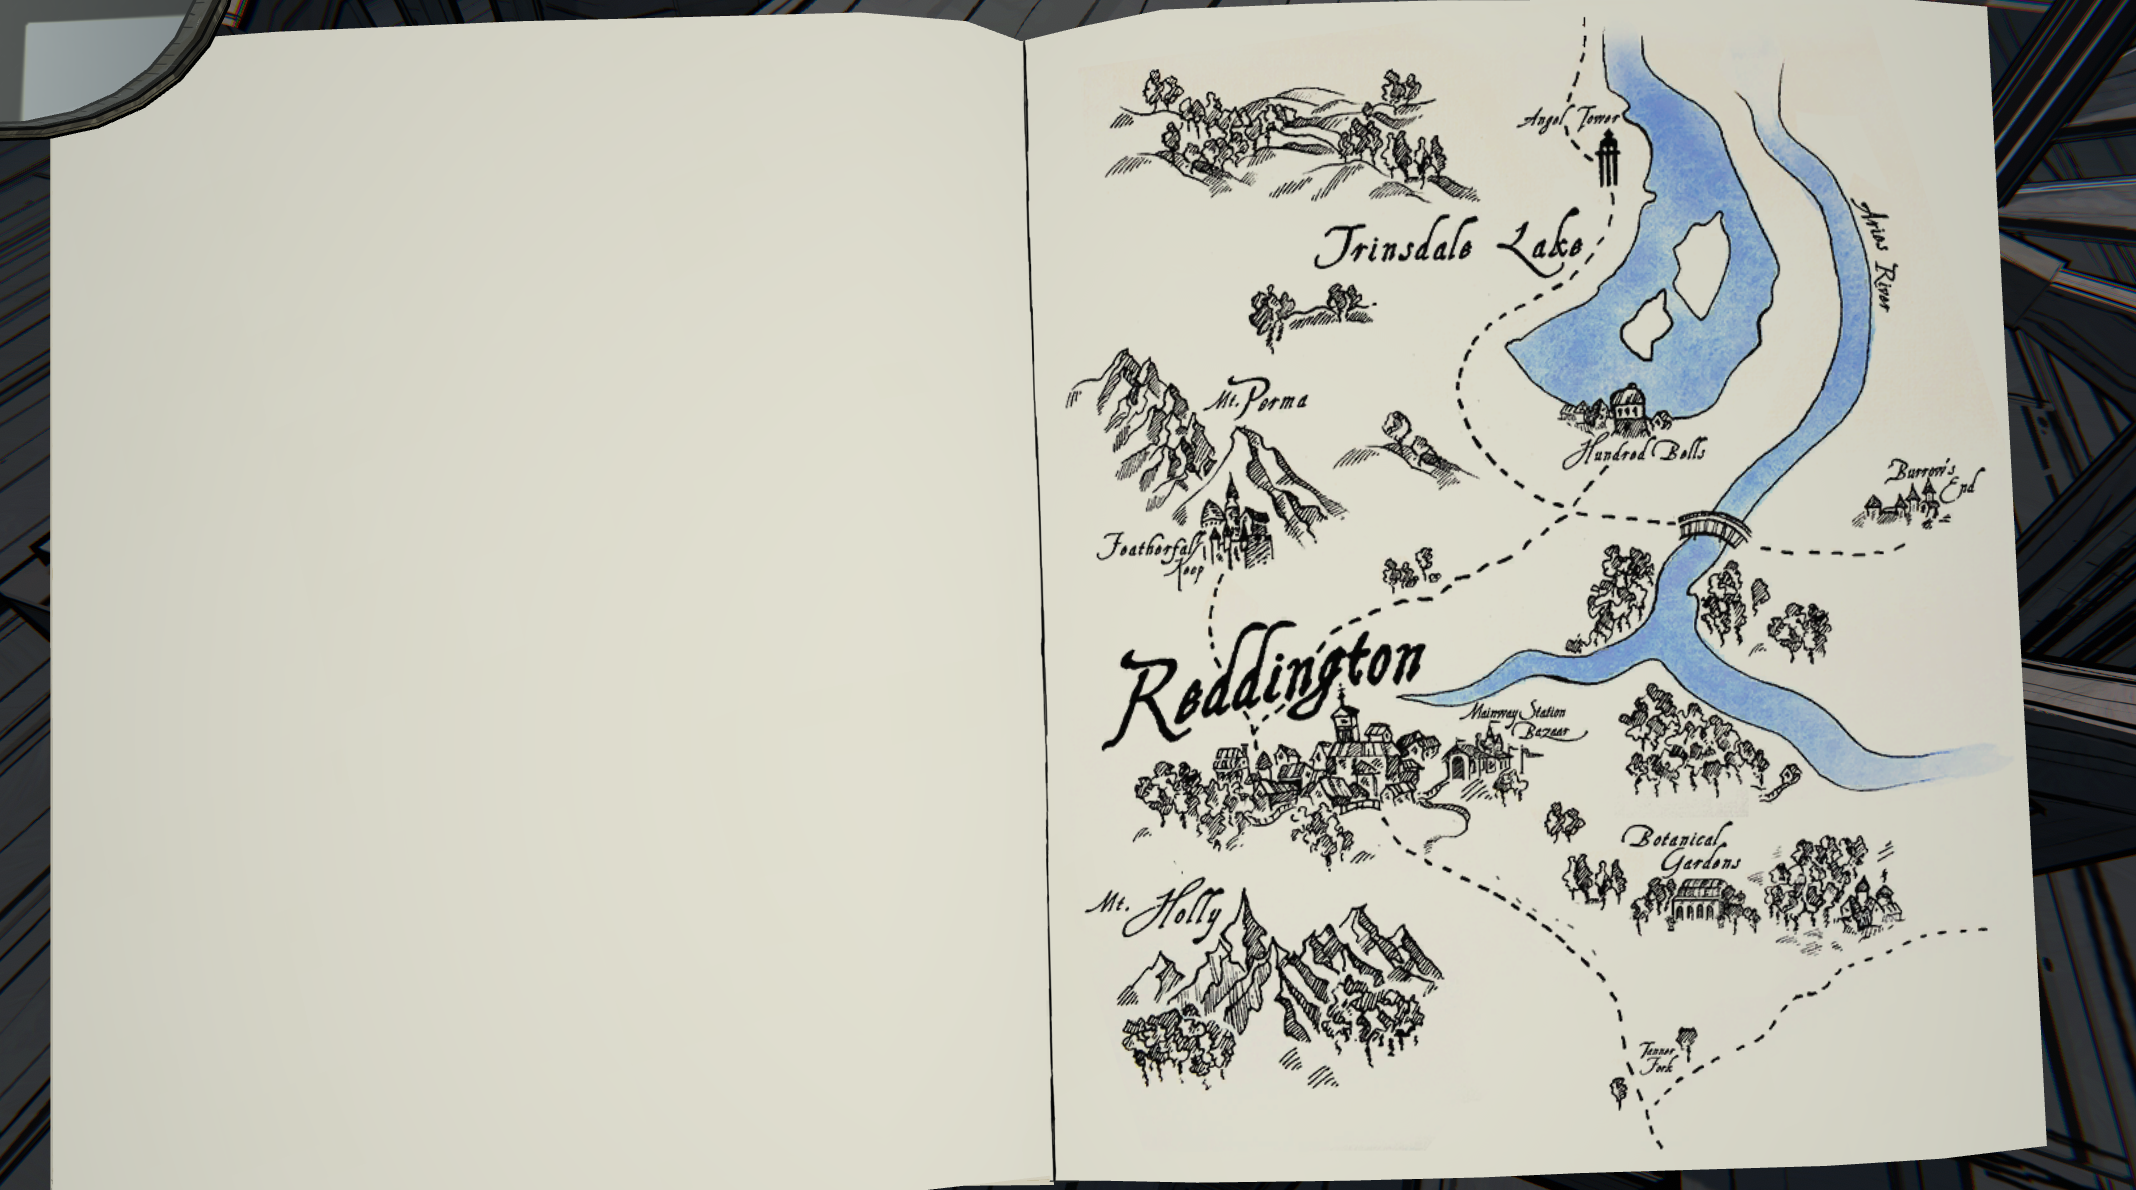 Angel Tower
Trinsdale Lake
Arias River
Mt. Perma
Hundred Bells
Burrow's
End
Featherfall
Keep
Reddington
Mainway Station
Bazaar
Botanical
Gardens
Mt. Holly
Tanner
Fork